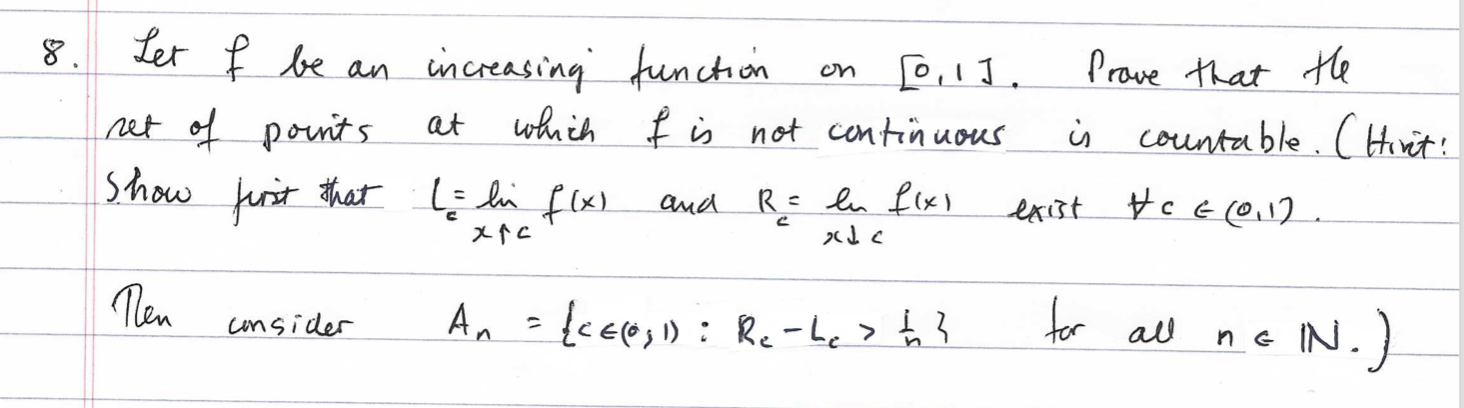 8. Let f be an increasing function on [0,1]. Prove that the
set of points at which f is not continuous is countable. (Hint:
Show first that L_c = lim f(x) and R_c = lim f(x) exist ∀c ∈ (0,1).
x↑c x↓c
Then consider A_n = {c∈(0,1) : R_c - L_c > 1/n} for all n ∈ ℕ.)